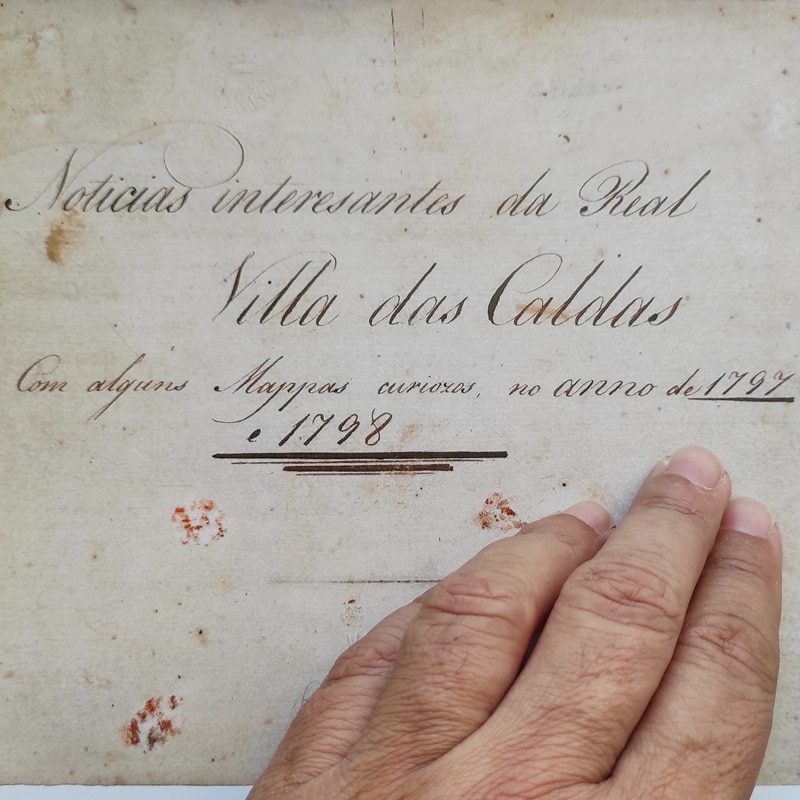 Noticias interesantes da Real
Villa das Caldas
Com alguns Mappas curiozos, no anno de 1797
e 1798